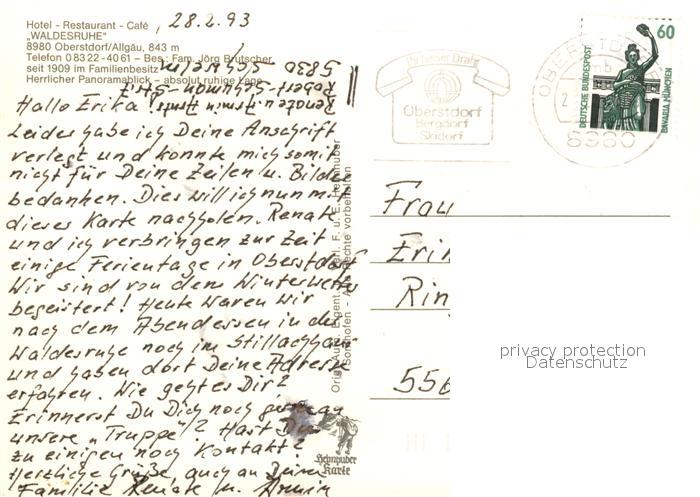 Hotel - Restaurant - Café
„WALDESRUHE"
8980 Oberstdorf/Allgäu, 843 m
Telefon 0 83 22 - 40 61 – Bes.: Fam. Jörg Brutscher
seit 1909 im Familienbesitz
Herrlicher Panoramablick – absolut ruhige Lage
, 28.2.93
Hallo Erika!
Leider habe ich Deine Anschrift
verlegt und konnte mich somit
nicht für Deine Zeilen u. Bilder
bedanken. Dies will ich nun mit
dieses Karte nachholen. Renate
und ich verbringen zur Zeit
einige Ferientage in Oberstdorf
Wir sind von dem Winterwetter
begeistert! Heute waren wir
nach dem Abendessen in der
Waldesruhe noch im Stillachhaus
und haben dort Deine Adresse
erfahren. Wie geht es Dir?
Erinnerst Du Dich noch genau an
unsere „Truppe"? Hast Du
zu einigen noch Kontakt?
Herzliche Grüße, auch an Deine
Familie Renate u. Armin
Renate u. Armin
Robert-Schuman-Str.
5830 Schwelm
Orig. Aufn. Eigent. Verl. F. u. E. Heimhuber
Sonthofen - Alle Rechte vorbehalten
Heimhuber
Karte
Ihr heißer Draht
Oberstdorf
Bergdorf
Skidorf
OBERSTDORF
mb
2
8980
DEUTSCHE BUNDESPOST
60
BAVARIA MÜNCHEN
Frau
Eri
Rin
556
privacy protection
Datenschutz